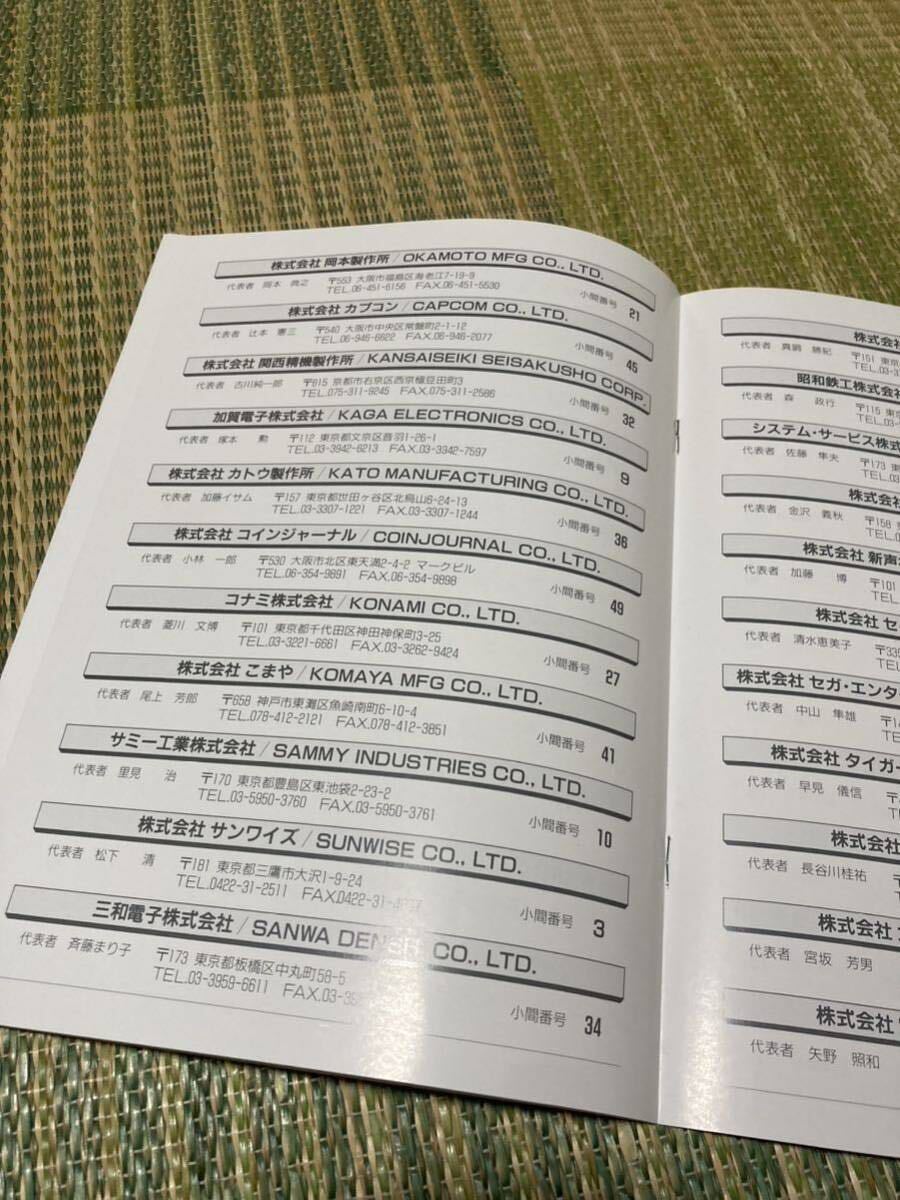 株式会社 岡本製作所/OKAMOTO MFG CO., LTD.
代表者 岡本 典之 〒553 大阪市福島区海老江7-19-9
TEL.06-451-6156 FAX.06-451-5530
小間番号 21
株式会社 カプコン/CAPCOM CO., LTD.
代表者 辻本 憲三 〒540 大阪市中央区常盤町2-1-12
TEL.06-946-6622 FAX.06-946-2077
小間番号 45
株式会社 関西精機製作所/KANSAISEIKI SEISAKUSHO CORP.
代表者 古川純一郎 〒615 京都市右京区西京極豆田町3
TEL.075-311-9245 FAX.075-311-2586
小間番号 32
加賀電子株式会社/KAGA ELECTRONICS CO., LTD.
代表者 塚本 勲 〒112 東京都文京区音羽1-26-1
TEL.03-3942-6213 FAX.03-3942-7597
小間番号 9
株式会社 カトウ製作所/KATO MANUFACTURING CO., LTD.
代表者 加藤イサム 〒157 東京都世田ヶ谷区北烏山6-24-13
TEL.03-3307-1221 FAX.03-3307-1244
小間番号 36
株式会社 コインジャーナル/COINJOURNAL CO., LTD.
代表者 小林 一郎 〒530 大阪市北区東天満2-4-2 マークビル
TEL.06-354-9891 FAX.06-354-9898
小間番号 49
コナミ株式会社/KONAMI CO., LTD.
代表者 菱川 文博 〒101 東京都千代田区神田神保町3-25
TEL.03-3221-6661 FAX.03-3262-9424
小間番号 27
株式会社 こまや/KOMAYA MFG CO., LTD.
代表者 尾上 芳郎 〒658 神戸市東灘区魚崎南町6-10-4
TEL.078-412-2121 FAX.078-412-3851
小間番号 41
サミー工業株式会社/SAMMY INDUSTRIES CO., LTD.
代表者 里見 治 〒170 東京都豊島区東池袋2-23-2
TEL.03-5950-3760 FAX.03-5950-3761
小間番号 10
株式会社 サンワイズ/SUNWISE CO., LTD.
代表者 松下 清 〒181 東京都三鷹市大沢1-9-24
TEL.0422-31-2511 FAX.0422-31-
小間番号 3
三和電子株式会社/SANWA DENSHI CO., LTD.
代表者 斉藤まり子 〒173 東京都板橋区中丸町58-5
TEL.03-3959-6611 FAX.03-
小間番号 34
株式会社
代表者 真鍋 勝紀 〒151 東京
TEL.03-3
昭和鉄工株式会社
代表者 森 政行 〒115 東京
TEL.03-
システム・サービス株式
代表者 佐藤 隼夫 〒173 東
TEL.03
株式会社
代表者 金沢 義秋 〒158 東
TEL.0
株式会社 新声
代表者 加藤 博 〒101
TEL.
株式会社 セ
代表者 清水恵美子 〒335
TEL
株式会社 セガ・エンタ
代表者 中山 隼雄 〒14
TE
株式会社 タイガー
代表者 早見 儀信 〒
T
株式会社
代表者 長谷川桂祐
株式会社
代表者 宮坂 芳男
株式会社
代表者 矢野 照和